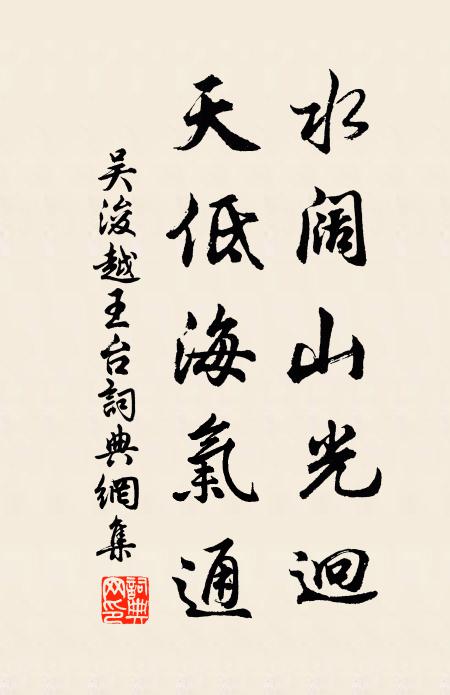 水阔山光迥
天低海氣通
吴浚越王台詞典網集
詞典
网印